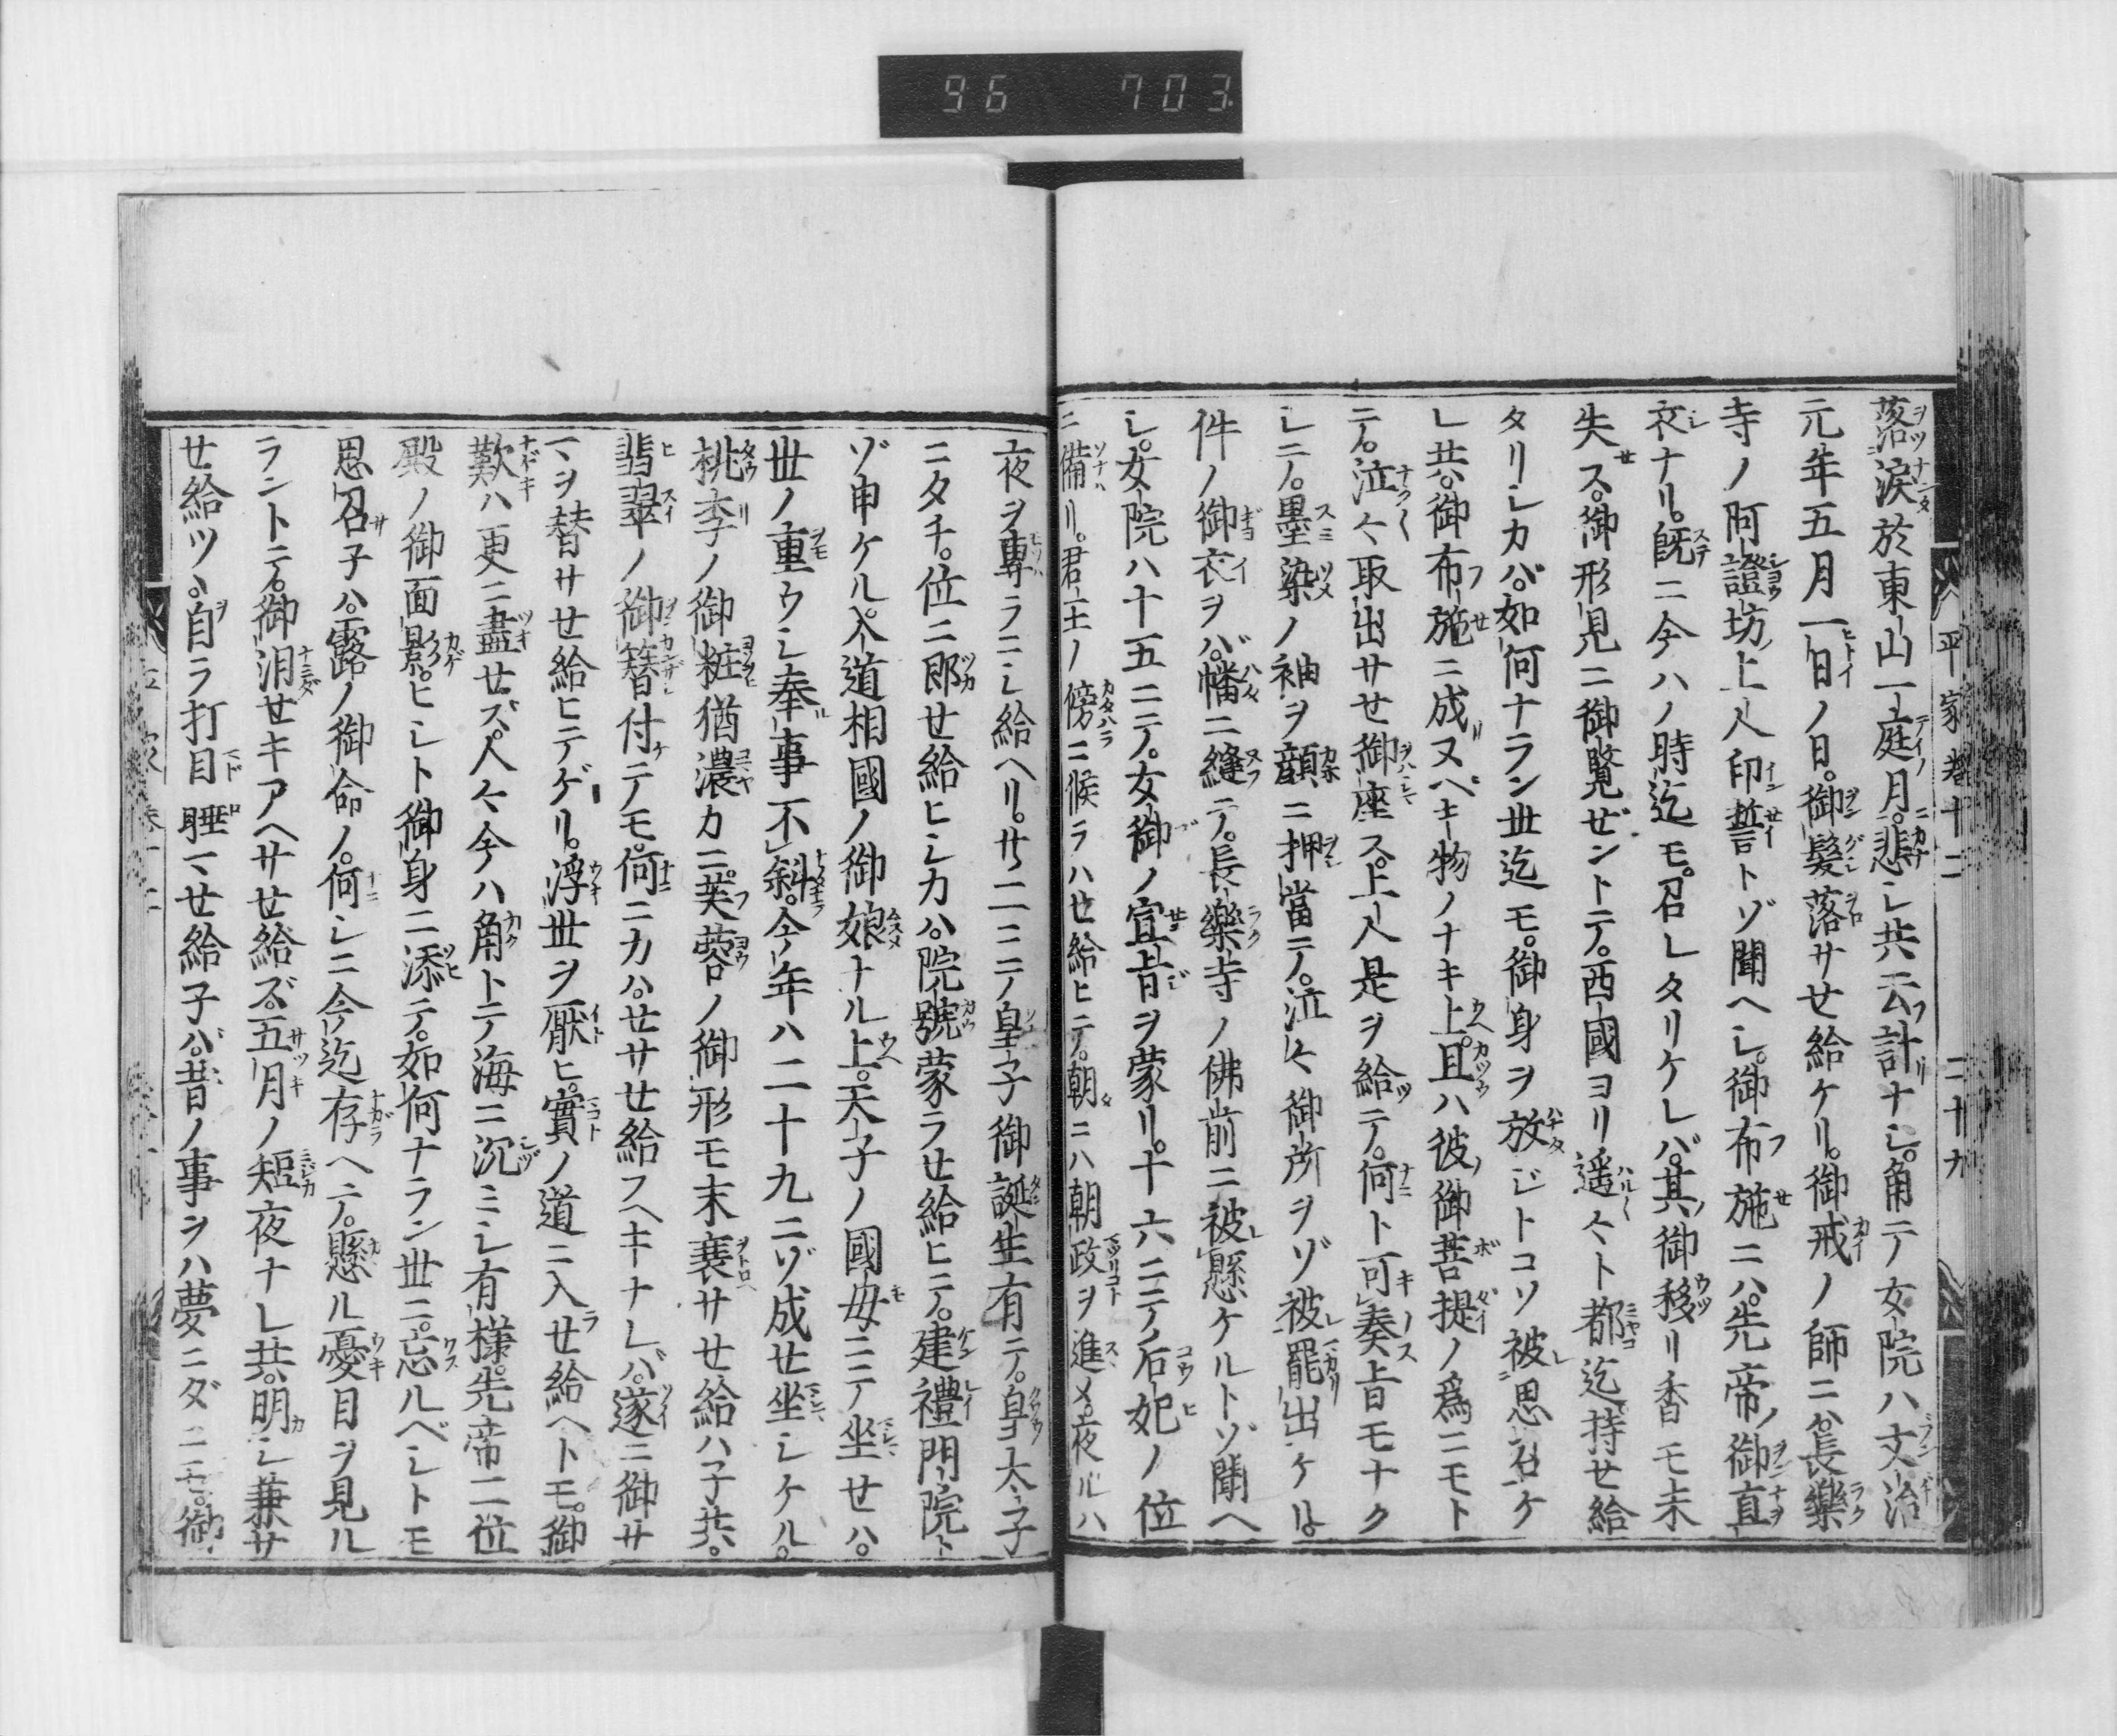 96 703
平家巻十二 二十九
落涙於東山一庭月悲シ共云計ナシ。角テ女院ハ文治
元年五月一日ノ日。御髪落サセ給ケリ。御戒ノ師ニハ。長樂
寺ノ阿證坊上人印誓トゾ聞ヘシ。御布施ニハ。先帝ノ御直
衣ナリ。既ニ今ハノ時迄モ。召レタリケレバ。其御移リ香モ未
失ス。御形見ニ御覧ゼントテ。西國ヨリ遥々ト都迄持セ給
タリシカバ。如何ナラン世迄モ。御身ヲ放ジトコソ被思召ケ
レ共。御布施ニ成ヌベキ物ノナキ上。且ハ彼御菩提ノ爲ニモト
テ。泣々取出サセ御座ス。上人是ヲ給テ。何ト可奏旨モナク
シテ。墨染ノ袖ヲ顔ニ押當テ。泣々御所ヲゾ被罷出ケル
件ノ御衣ヲバ。幡ニ縫テ。長樂寺ノ佛前ニ被懸ケルトゾ聞ヘ
シ。女院ハ十五ニテ。女御ノ宣旨ヲ蒙リ。十六ニテ后妃ノ位
ニ備リ。君王ノ傍ニ候ラハセ給ヒテ。朝ニハ朝政ヲ進メ。夜ルハ
夜ヲ專ラニシ給ヘリ。廿二ニテ皇子御誕生有テ。皇太子
ニタチ。位ニ即セ給ヒシカハ。院號蒙ラセ給ヒテ。建禮門院ト
ゾ申ケル。入道相國ノ御娘ナル上。天子ノ國母ニテ坐セハ。
世ノ重ウシ奉事不斜。今年ハ二十九ニゾ成セ坐シケル。
桃李ノ御粧猶濃カニ。芙蓉ノ御形モ未衰サセ給ハ子共。
翡翠ノ御簪付テモ。何ニカハ。セサセ給フヘキナレバ。遂ニ御サ
マヲ替サセ給ヒテゲリ。浮世ヲ厭ヒ。實ノ道ニ入セ給ヘトモ。御
歎ハ更ニ盡セズ。人々今ハ角トテ海ニ沉ミシ有様。先帝二位
殿ノ御面影。ヒシト御身ニ添テ。如何ナラン世ニ。忘ルベシトモ
思召子ハ。露ノ御命ノ。何シニ今迄存ヘテ。懸ル憂目ヲ見ル
ラントテ。御泪セキアヘサセ給ズ。五月ノ短夜ナレ共。明シ兼サ
セ給ツヽ。自ラ打目睡マセ給子バ。昔ノ事ヲハ夢ニダニモ。御